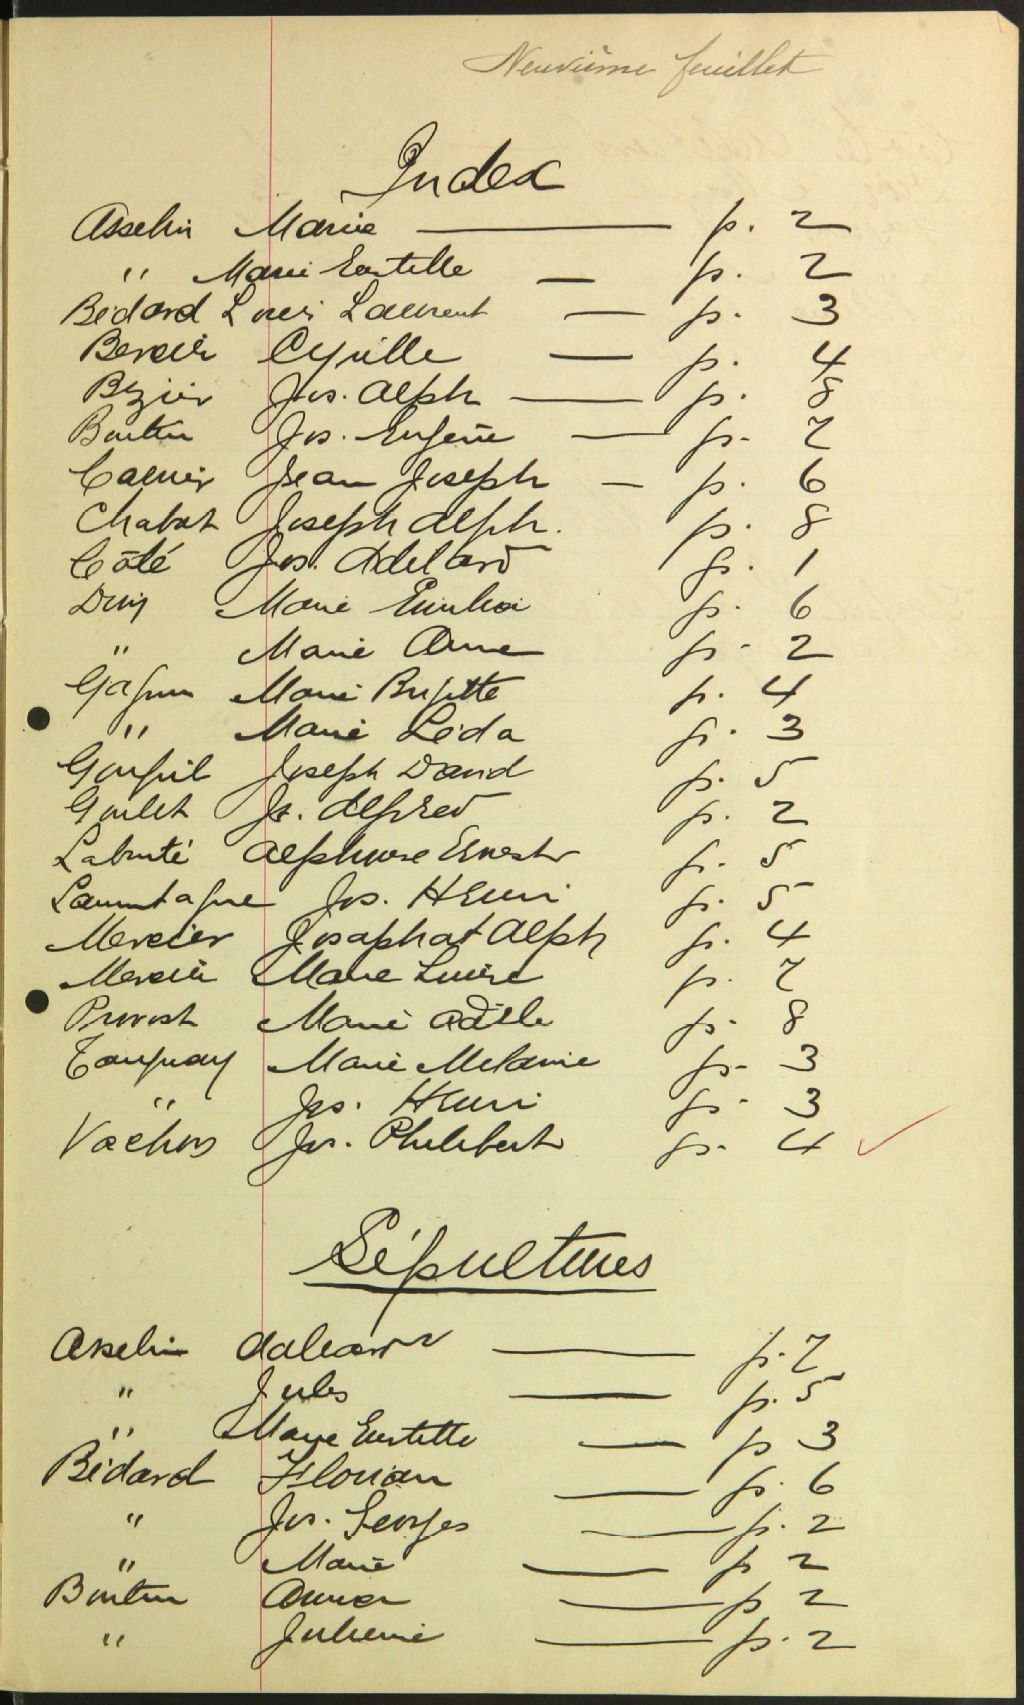 Neuvième feuillet
Index
Asselin Marie — p. 2
" Marie Eustelle — p. 2
Bédard Louis Laurent — p. 3
Bercier Cyrille — p. 4
Bézier Jos. Alph — p. 8
Boutin Jos. Eugène — p. 7
Carrier Jean Joseph — p. 6
Chabot Joseph Alph. p. 8
Côté Jos. Adélard p. 1
Marie p. 6
" Marie Anne p. 2
Gagnon Marie Brigitte p. 4
" Marie Léda p. 3
Goupil Joseph David p. 5
Goulet Jos. Alfred p. 2
Labonté Alphonse Ernest p. 5
Lamontagne Jos. Henri p. 5
Mercier Josaphat Alph p. 4
Mercier Marie Louise p. 7
Provost Marie Adèle p. 8
Tanguay Marie Mélanie p. 3
" Jos. Henri p. 3
Vachon Jos. Philibert p. 4
Sépultures
Asselin — p. 7
" Jules — p. 5
" Marie Eustelle — p 3
Bédard Florian — p. 6
" Jos. Georges — p. 2
" Marie — p 2
Boutin Anna — p 2
" Julienne — p. 2